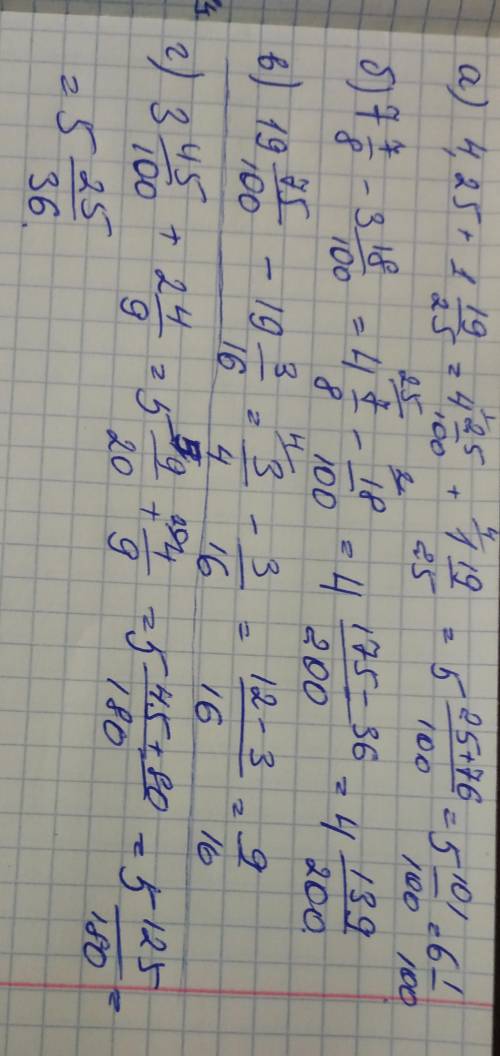 а) 4,25 + 1 19/25 = 4 25/100 + 1 19/25 = 5 (25+76)/100 = 5 101/100 = 6 1/100
б) 7 7/8 - 3 18/100 = 4 7/8 - 18/100 = 4 (175-36)/200 = 4 139/200
в) 19 75/100 - 19 3/16 = 3/4 - 3/16 = (12-3)/16 = 9/16
г) 3 45/100 + 2 4/9 = 5 9/20 + 4/9 = 5 (45+80)/180 = 5 125/180 =
= 5 25/36.